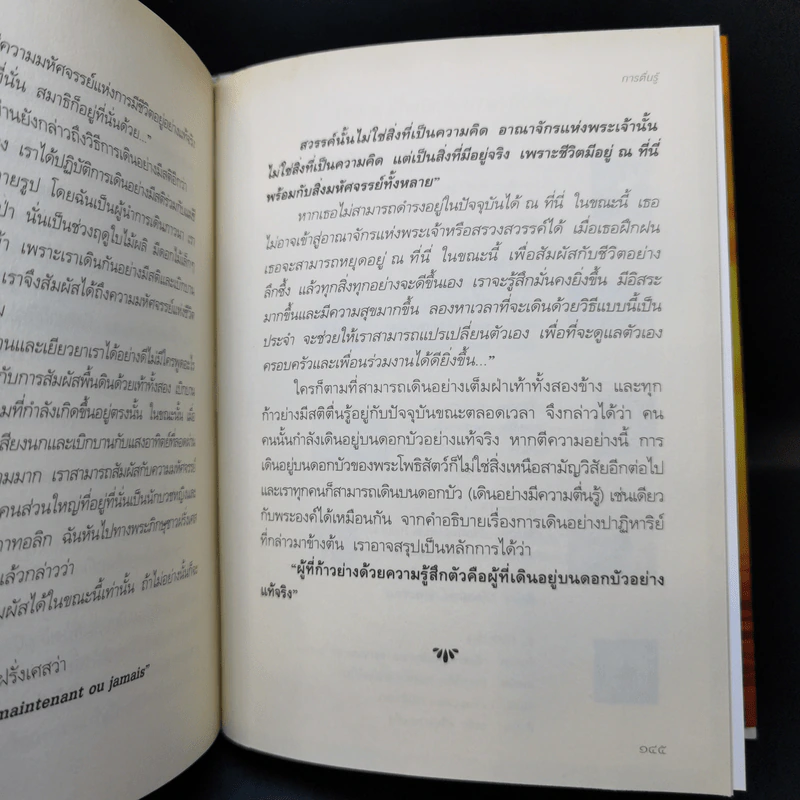 ความมหัศจรรย์แห่งการมีชีวิตอยู่อย่างแท้จริง
ที่นั่น สมาธิก็อยู่ที่นั่นด้วย..."
านยังกล่าวถึงวิธีการเดินอย่างมีสติอีกว่า
เราได้ปฏิบัติการเดินอย่างมีสติร่วมกับแม่ชี
ายรูป โดยฉันเป็นผู้นำการเดินภาวนา เรา
ป่า นั่นเป็นช่วงฤดูใบไม้ผลิ มีดอกไม้เล็กๆ
เพราะเราเดินกันอย่างมีสติและเบิกบาน
เราจึงสัมผัสได้ถึงความมหัศจรรย์แห่งชีวิต
านและเยียวยาเราได้อย่างดีไม่มีใครพูดอะไร
กับการสัมผัสพื้นดินด้วยเท้าทั้งสอง เบิกบาน
มที่กำลังเกิดขึ้นอยู่ตรงนั้น ในขณะนั้น เมื่อ
เสียงนกและเบิกบานกับแสงอาทิตย์ที่ลอดผ่าน
ามมาก เราสามารถสัมผัสกับความมหัศจรรย์
คนส่วนใหญ่ที่อยู่ที่นั่นเป็นนักบวชหญิงและ
าทอลิก ฉันหันไปทางพระภิกษุชาวฝรั่งเศส
แล้วกล่าวว่า
มผัสได้ในขณะนี้เท่านั้น ถ้าไม่อย่างนั้นก็จะ
ฝรั่งเศสว่า
maintenant ou jamais"
การตื่นรู้
สวรรค์นั้นไม่ใช่สิ่งที่เป็นความคิด อาณาจักรแห่งพระเจ้านั้น
ไม่ใช่สิ่งที่เป็นความคิด แต่เป็นสิ่งที่มีอยู่จริง เพราะชีวิตมีอยู่ ณ ที่นี่
พร้อมกับสิ่งมหัศจรรย์ทั้งหลาย"
หากเธอไม่สามารถดำรงอยู่ในปัจจุบันได้ ณ ที่นี่ ในขณะนี้ เธอ
ไม่อาจเข้าสู่อาณาจักรแห่งพระเจ้าหรือสรวงสวรรค์ได้ เมื่อเธอฝึกฝน
เธอจะสามารถหยุดอยู่ ณ ที่นี่ ในขณะนี้ เพื่อสัมผัสกับชีวิตอย่าง
ลึกซึ้ง แล้วทุกสิ่งทุกอย่างจะดีขึ้นเอง เราจะรู้สึกมั่นคงยิ่งขึ้น มีอิสระ
มากขึ้นและมีความสุขมากขึ้น ลองหาเวลาที่จะเดินด้วยวิธีแบบนี้เป็น
ประจำ จะช่วยให้เราสามารถแปรเปลี่ยนตัวเอง เพื่อที่จะดูแลตัวเอง
ครอบครัวและเพื่อนร่วมงานได้ดียิ่งขึ้น..."
ใครก็ตามที่สามารถเดินอย่างเต็มฝ่าเท้าทั้งสองข้าง และทุก
ก้าวย่างมีสติตื่นรู้อยู่กับปัจจุบันขณะตลอดเวลา จึงกล่าวได้ว่า คน
คนนั้นกำลังเดินอยู่บนดอกบัวอย่างแท้จริง หากตีความอย่างนี้ การ
เดินอยู่บนดอกบัวของพระโพธิสัตว์ก็ไม่ใช่สิ่งเหนือสามัญวิสัยอีกต่อไป
และเราทุกคนก็สามารถเดินบนดอกบัว (เดินอย่างมีความตื่นรู้) เช่นเดียว
กับพระองค์ได้เหมือนกัน จากคำอธิบายเรื่องการเดินอย่างปาฏิหาริย์
ที่กล่าวมาข้างต้น เราอาจสรุปเป็นหลักการได้ว่า
"ผู้ที่ก้าวย่างด้วยความรู้สึกตัวคือผู้ที่เดินอยู่บนดอกบัวอย่าง
แท้จริง"
๑๔๕